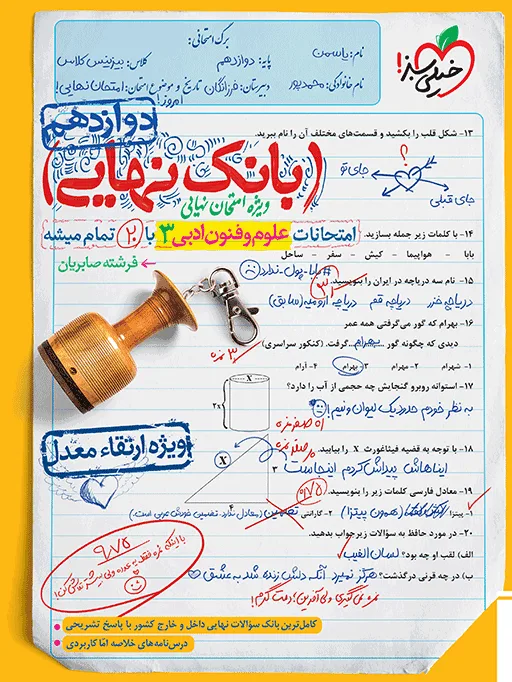 خیلی سبز!
برگ امتحانی:
نام: یاسمن
پایه: دوازدهم
کلاس: بیزینس کلاس
نام خانوادگی: محمدپور
دبیرستان: فرزانگان
تاریخ و موضوع امتحان: امتحان نهایی!
امروز!
دوازدهم
(بانک نهایی)
ویژه امتحان نهایی
امتحانات علوم و فنون ادبی ۳ با ۲۰ تمام میشه
فرشته صابریان
۱۳- شکل قلب را بکشید و قسمت‌های مختلف آن را نام ببرید.
؟
جای تو
جای قبلی
۱۴- با کلمات زیر جمله بسازید.
بابا - هواپیما - کیش - سفر - ساحل
#بابا-پول-ندارد
۱۵- نام سه دریاچه در ایران را بنویسید.
دریاچه خزر دریاچه قم دریاچه ارومیه (سابق)
۱۶- بهرام که گور می‌گرفتی همه عمر
دیدی که چگونه گور بهرام گرفت. (کنکور سراسری)
۳ نمره
۱- شهرام ۲- مهرام ۳- بهرام ۴- آرام
۱۷- استوانه روبرو گنجایش چه حجمی از آب را دارد؟
به نظر خودم حدود یک لیوان و نیم!
X
2X
۱۸- با توجه به قضیه فیثاغورت X را بیابید.
ایناهاش پیداش کردم اینجاست
X
۳
۴
ویژه ارتقاء معدل
۱۹- معادل فارسی کلمات زیر را بنویسید.
۱- پیتزا (همون پیتزا) ۲- گارانتی تضمین
۲۰- در مورد حافظ به سؤالات زیر جواب بدهید.
الف) لقب او چه بود؟ لسان الغیب
ب) در چه قرنی درگذشت؟ هرگز نمیرد آنکه دلش زنده شد به عشق
نمره نمی‌گیری ولی آفرین؛ دمت گرم!
۹/۷۵
کامل‌ترین بانک سؤالات نهایی داخل و خارج کشور با پاسخ تشریحی
درس‌نامه‌های خلاصه امّا کاربردی